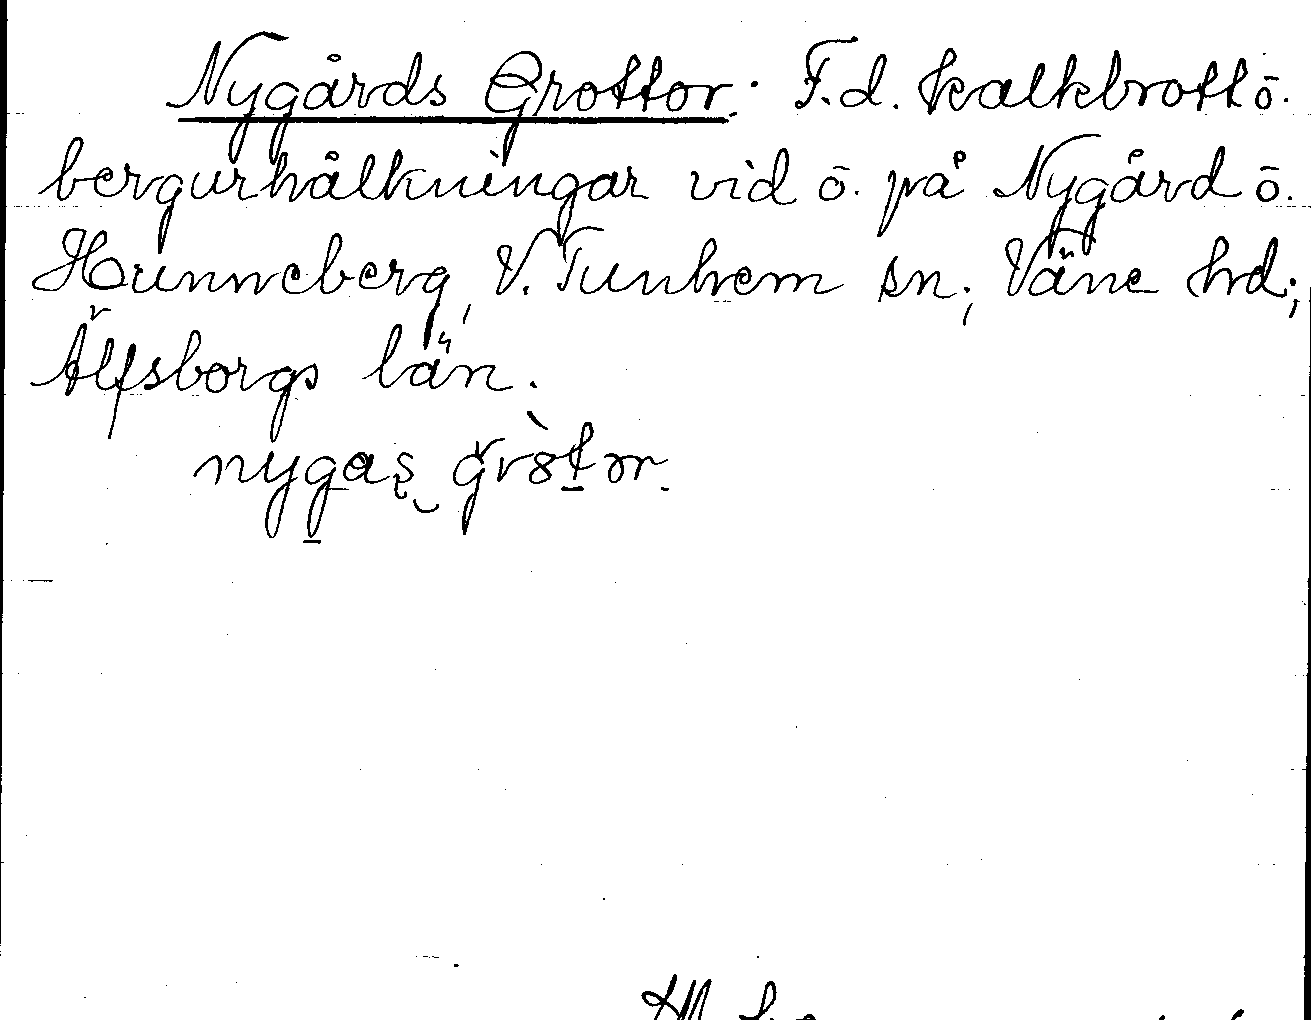 Nygårds Grottor. F.d. kalkbrott ō.
bergurhålkningar vid ō. på Nygård ō.
Hunneberg, V. Tunhem sn; Väne hd;
Älfsborgs län.
nygas grotər.